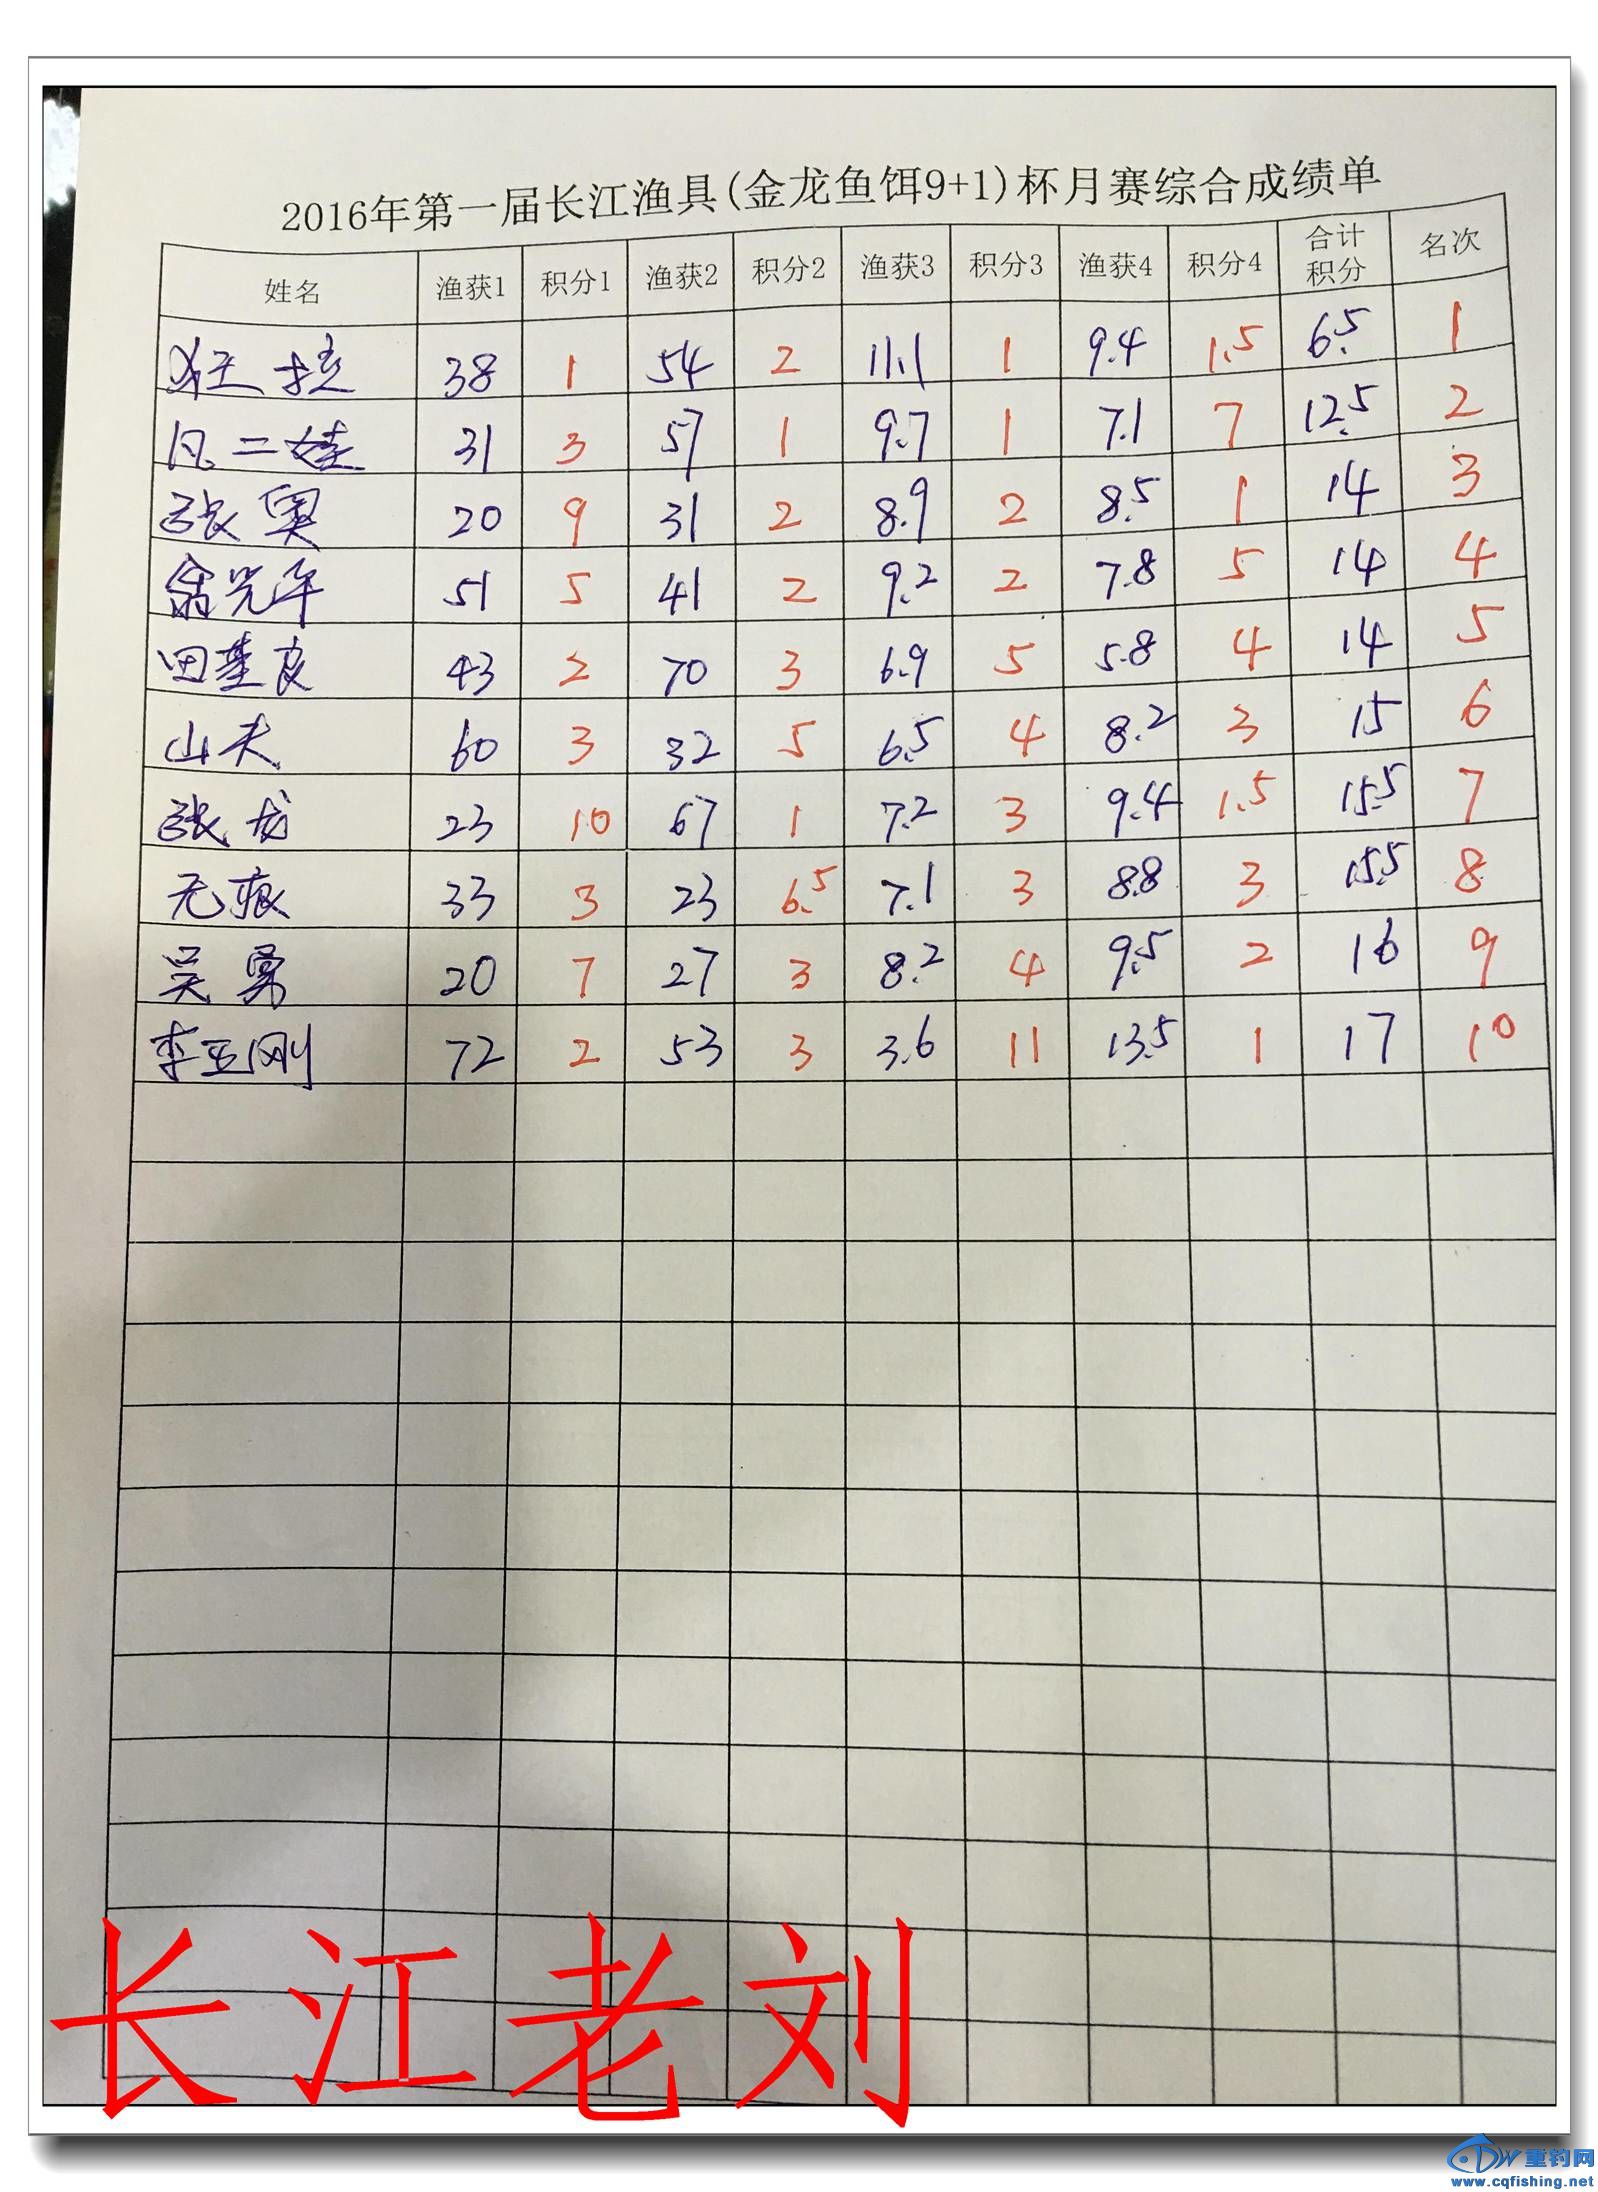 2016年第一届长江渔具(金龙鱼饵9+1)杯月赛综合成绩单
姓名 渔获1 积分1 渔获2 积分2 渔获3 积分3 渔获4 积分4 合计积分 名次
38 1 54 2 11.1 1 9.4 1.5 6.5 1
凡二娃 31 3 57 1 9.7 1 7.1 7 12.5 2
张奥 20 9 31 2 8.9 2 8.5 1 14 3
余光平 51 5 41 2 9.2 2 7.8 5 14 4
田基良 43 2 70 3 6.9 5 5.8 4 14 5
山夫 60 3 32 5 6.5 4 8.2 3 15 6
张龙 23 10 67 1 7.2 3 9.4 1.5 15.5 7
无痕 33 3 23 6.5 7.1 3 8.8 3 15.5 8
吴勇 20 7 27 3 8.2 4 9.5 2 16 9
李亚刚 72 2 53 3 3.6 11 13.5 1 17 10
长江老刘
重钓网
www.cqfishing.net